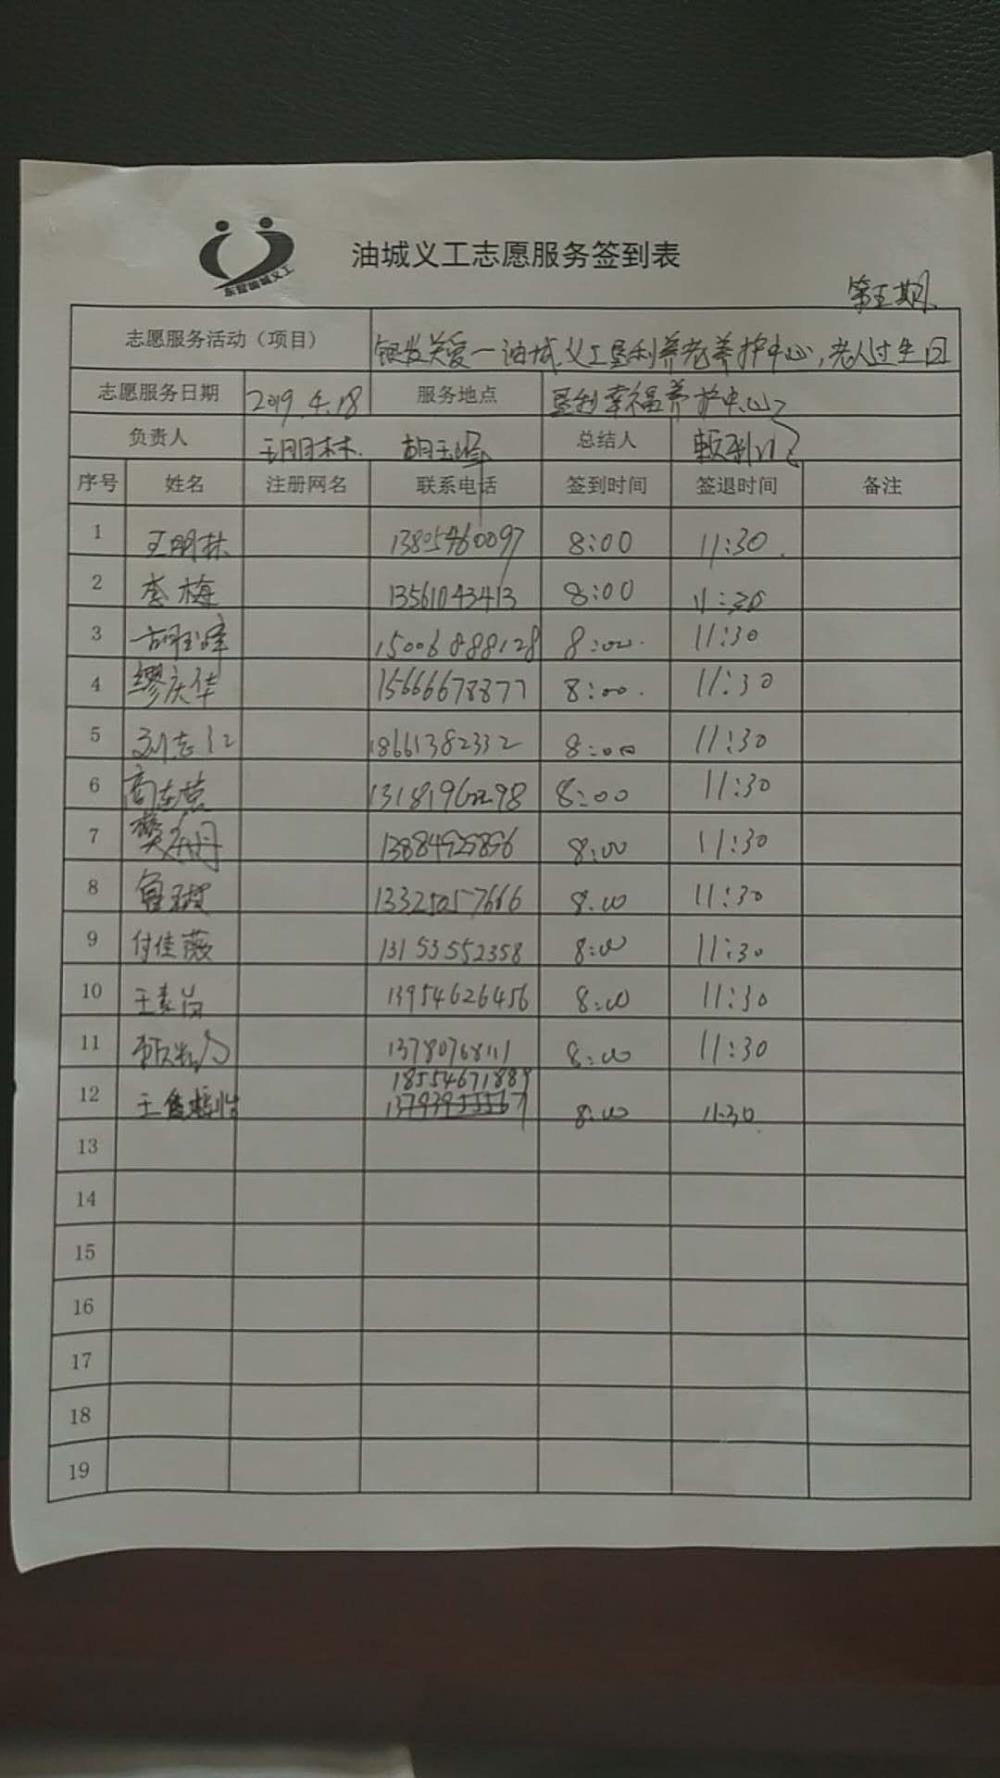 东营油城义工
油城义工志愿服务签到表
第五期
志愿服务活动（项目） 银发关爱一油城义工垦利养老养护中心，老人过生日
志愿服务日期 2019.4.18 服务地点 垦利幸福养护中心
负责人 王明林 胡玉峰 总结人
序号 姓名 注册网名 联系电话 签到时间 签退时间 备注
1 王明林 13805460097 8:00 11:30
2 李梅 13561043413 8:00 11:30
3 胡玉峰 15006888128 8:00 11:30
4 缪庆华 15666678877 8:00 11:30
5 刘志江 18661382332 8:00 11:30
6 13181962298 8:00 11:30
7 13884925896 8:00 11:30
8 13325057666 8:00 11:30
9 付佳薇 13153552358 8:00 11:30
10 13954626456 8:00 11:30
11 13780768111 8:00 11:30
18554671889
12 13793955567 8:00 11:30
13
14
15
16
17
18
19